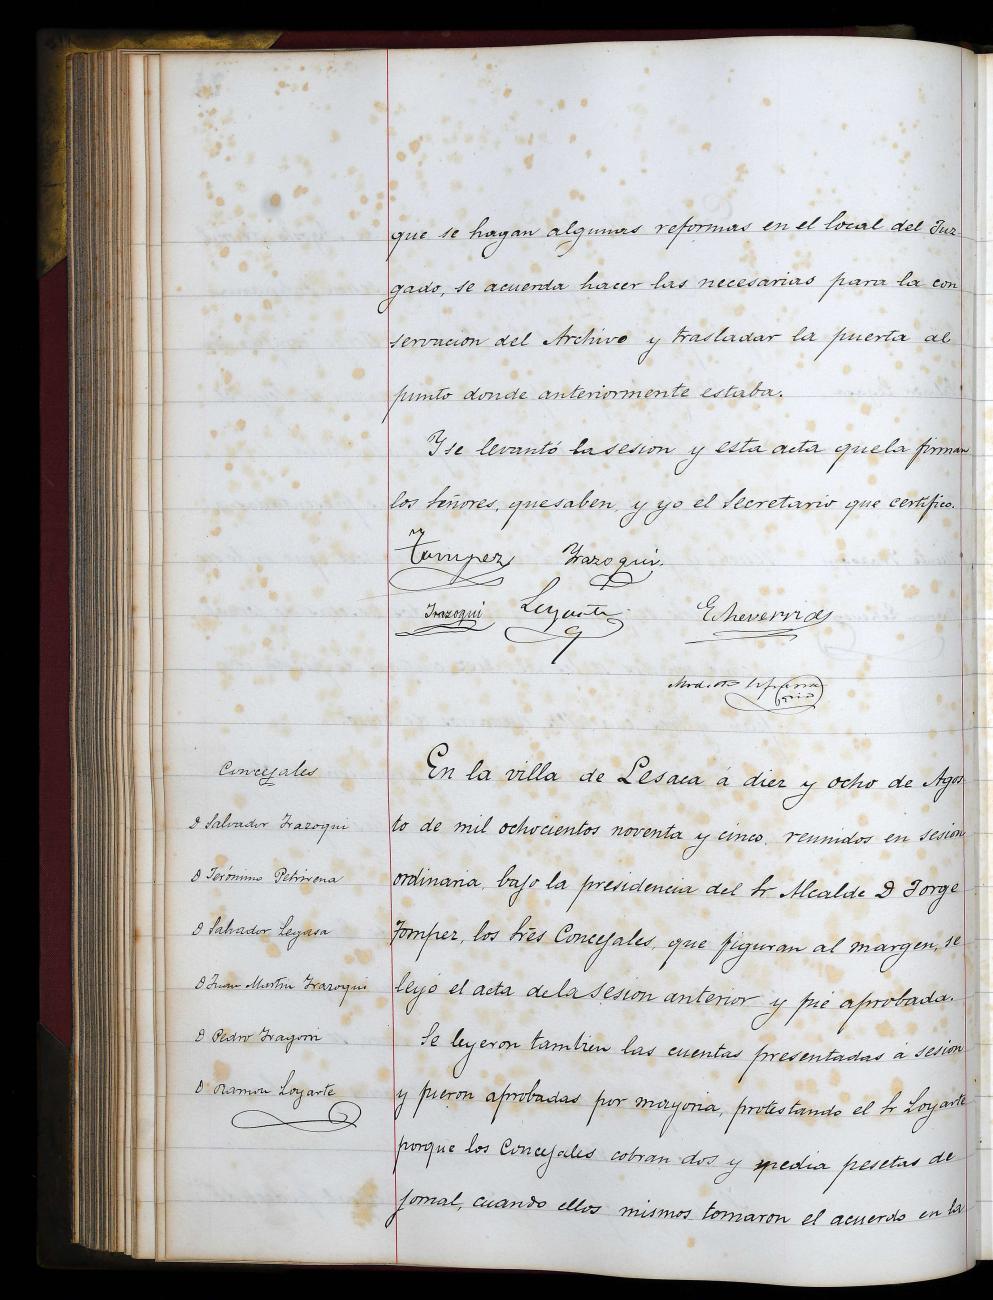 que se hagan algunas reformas en el local del Juz
gado, se acuerda hacer las necesarias para la con
servacion del Archivo y trasladar la puerta al
punto donde anteriormente estaba.
Y se levantó la sesion y esta acta que la firman
los Señores, que saben, y yo el Secretario que certifico.
Tompez Irazoqui.
Irazoqui Loyarte Echeverria
Modesto
Concejales
D Salvador Irazoqui
D Jerónimo Petrirena
D Salvador Legasa
D Juan Martin Irazoqui
D Pedro Iragorri
D Ramon Loyarte
En la villa de Lesaca á diez y ocho de Agos
to de mil ochocientos noventa y cinco, reunidos en sesion
ordinaria, bajo la presidencia del Sr Alcalde D Jorge
Tompez, los Srēs Concejales, que figuran al margen, se
leyó el acta de la sesion anterior y fué aprobada.
Se leyeron tambien las cuentas presentadas á sesion
y fueron aprobadas por mayoria, protestando el Sr Loyarte
porque los Concejales cobran dos y media pesetas de
jornal, cuando ellos mismos tomaron el acuerdo en la